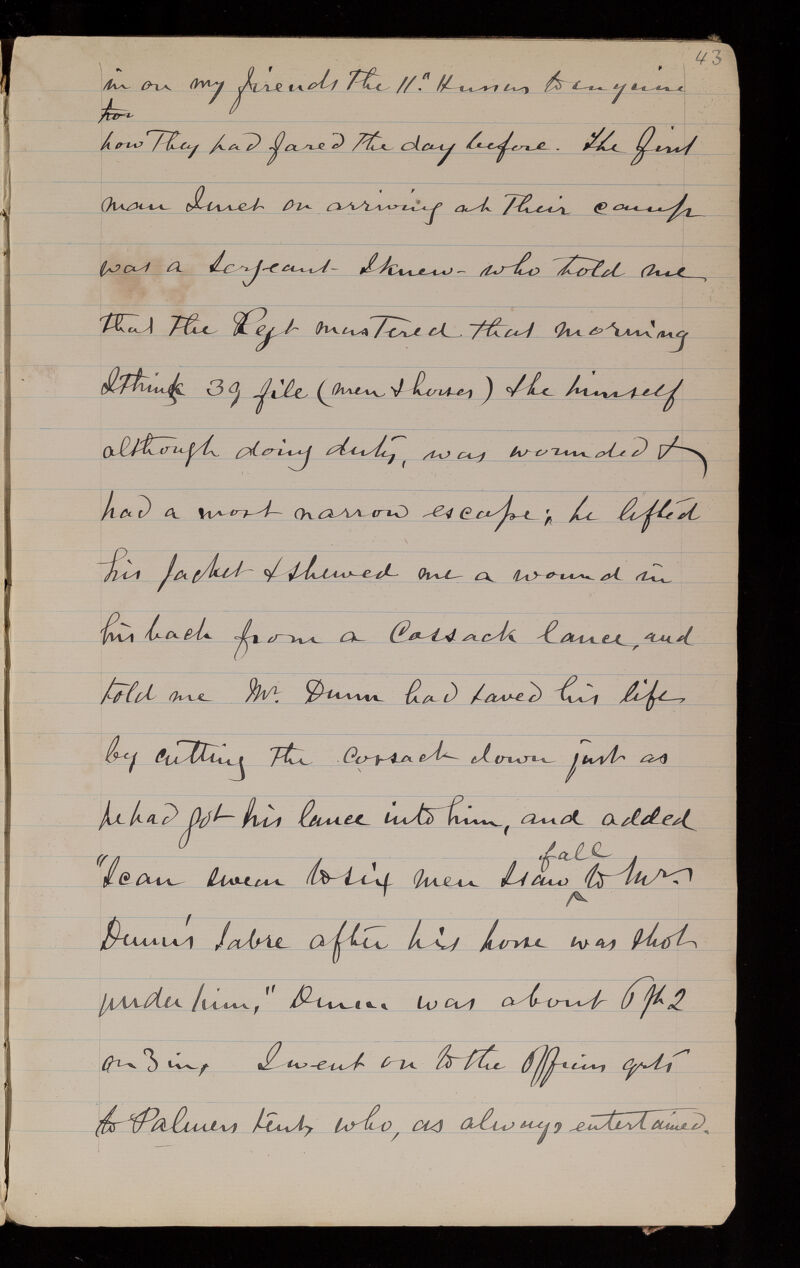 43
in on my friends the 11th Hussars to enquire
hou
how they had fared the day before. The first
man I met on arriving at their camp
was a sergeant I knew - who told me
that the Regt mustered that morning
I think 39 file (men & horses) & he himself
although doing duty, was wounded &
had a most narrow escape; he lifted
his jacket & shewed me a wound in
his back from a Cossack lance, and
told me Mr. Dunn had saved his life
by cutting the Cossack down just as
he had got his lance into him, and added
"I can swear to six men I saw fall to Mr.
Dunn's sabre after his horse was shot
under him," Dunn was about 6 ft 2
or 3 in. I went on to the Officers qrts
to Palmers tent, who, as always entertained.